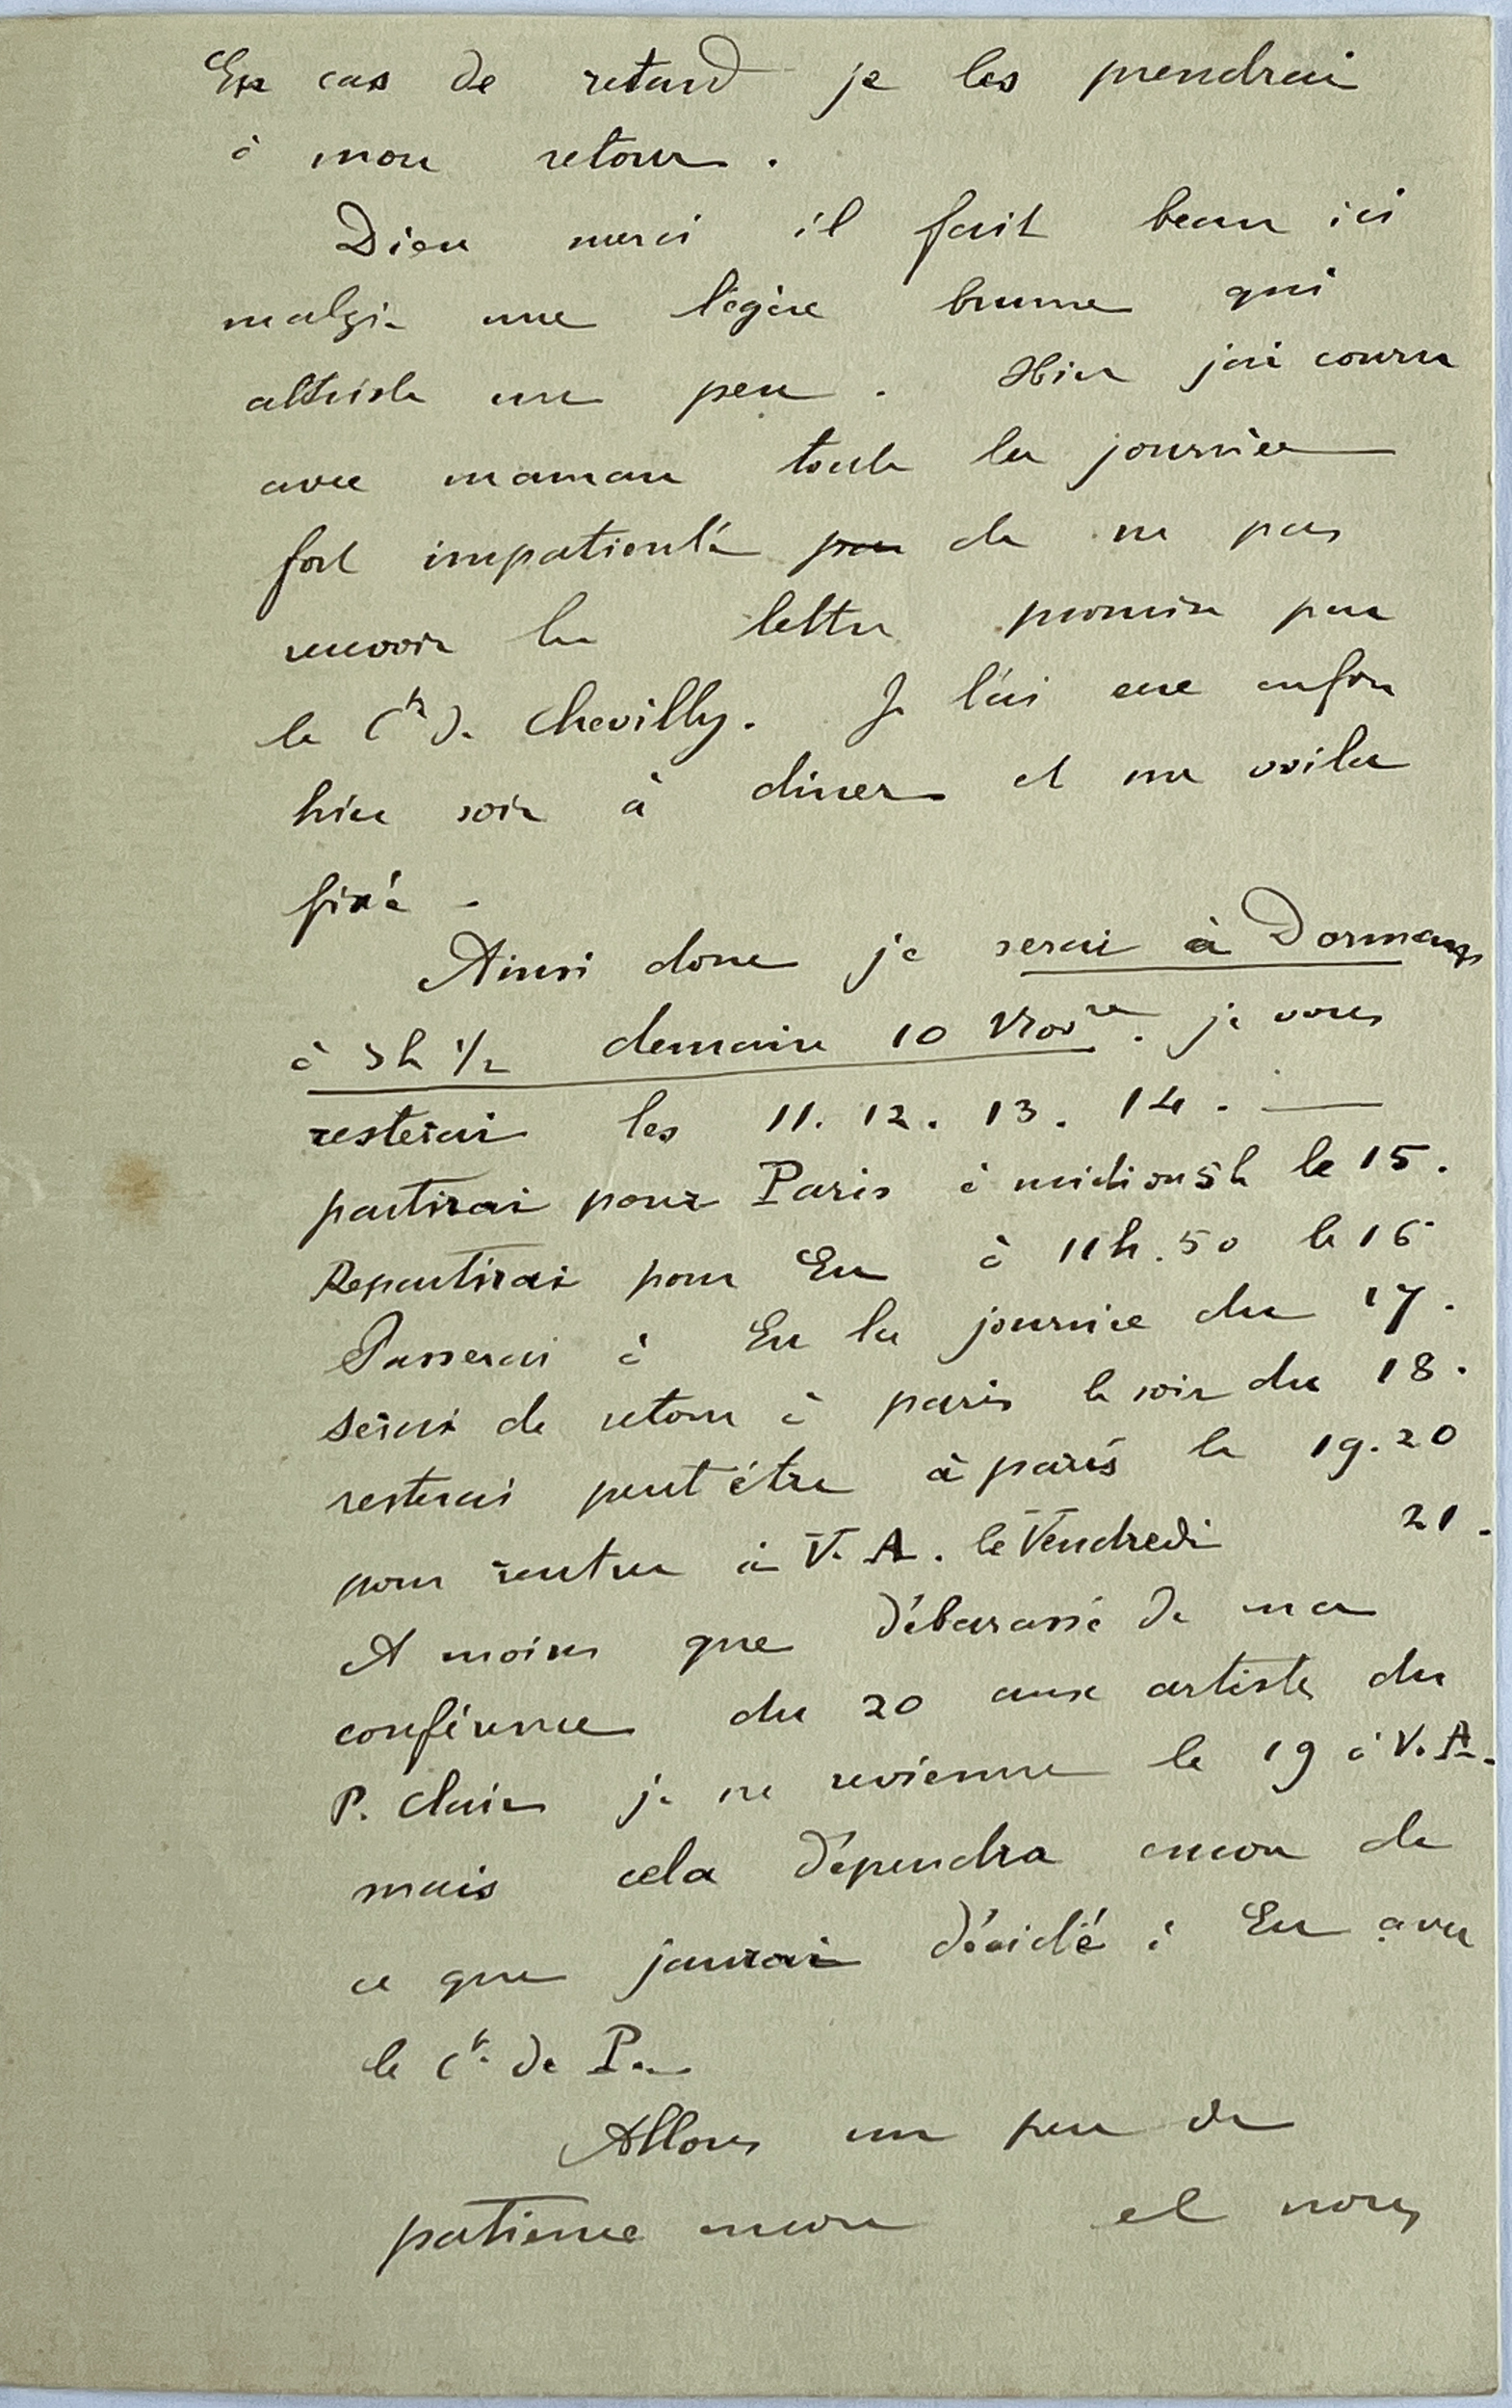 En cas de retard je les prendrai
à mon retour.
Dieu merci il fait beau ici
malgré une légère brume qui
attriste un peu. Hier j'ai couru
avec maman toute la journée
fort impatienté par de ne pas
recevoir la lettre promise par
le Cte de Chevilly. Je l'ai eue enfin
hier soir à diner et me voila
fixé -
Ainsi donc je serai à Dormans
à 5h 1/2 demain 10 Novre. je vous
resterai les 11. 12. 13. 14. —
partirai pour Paris à midi ou 5h le 15.
Repartirai pour Eu à 11h.50 le 16
Passerai à Eu la journée du 17.
serai de retour à paris le soir du 18.
resterai peut être à paris le 19.20
pour rentrer à V. A. le Vendredi 21.
A moins que débarassé de ma
conférence du 20 aux artistes du
P. Clair je ne revienne le 19 à V. A.
mais cela dépendra encore de
ce que j'aurai décidé à Eu avec
le Cte de P.
Allons un peu de
patience encore et nous